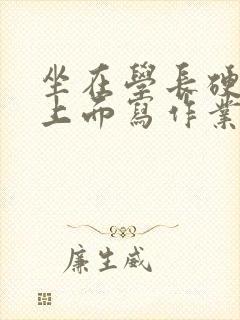 坐在學長硬
上而寫作業
廉生威